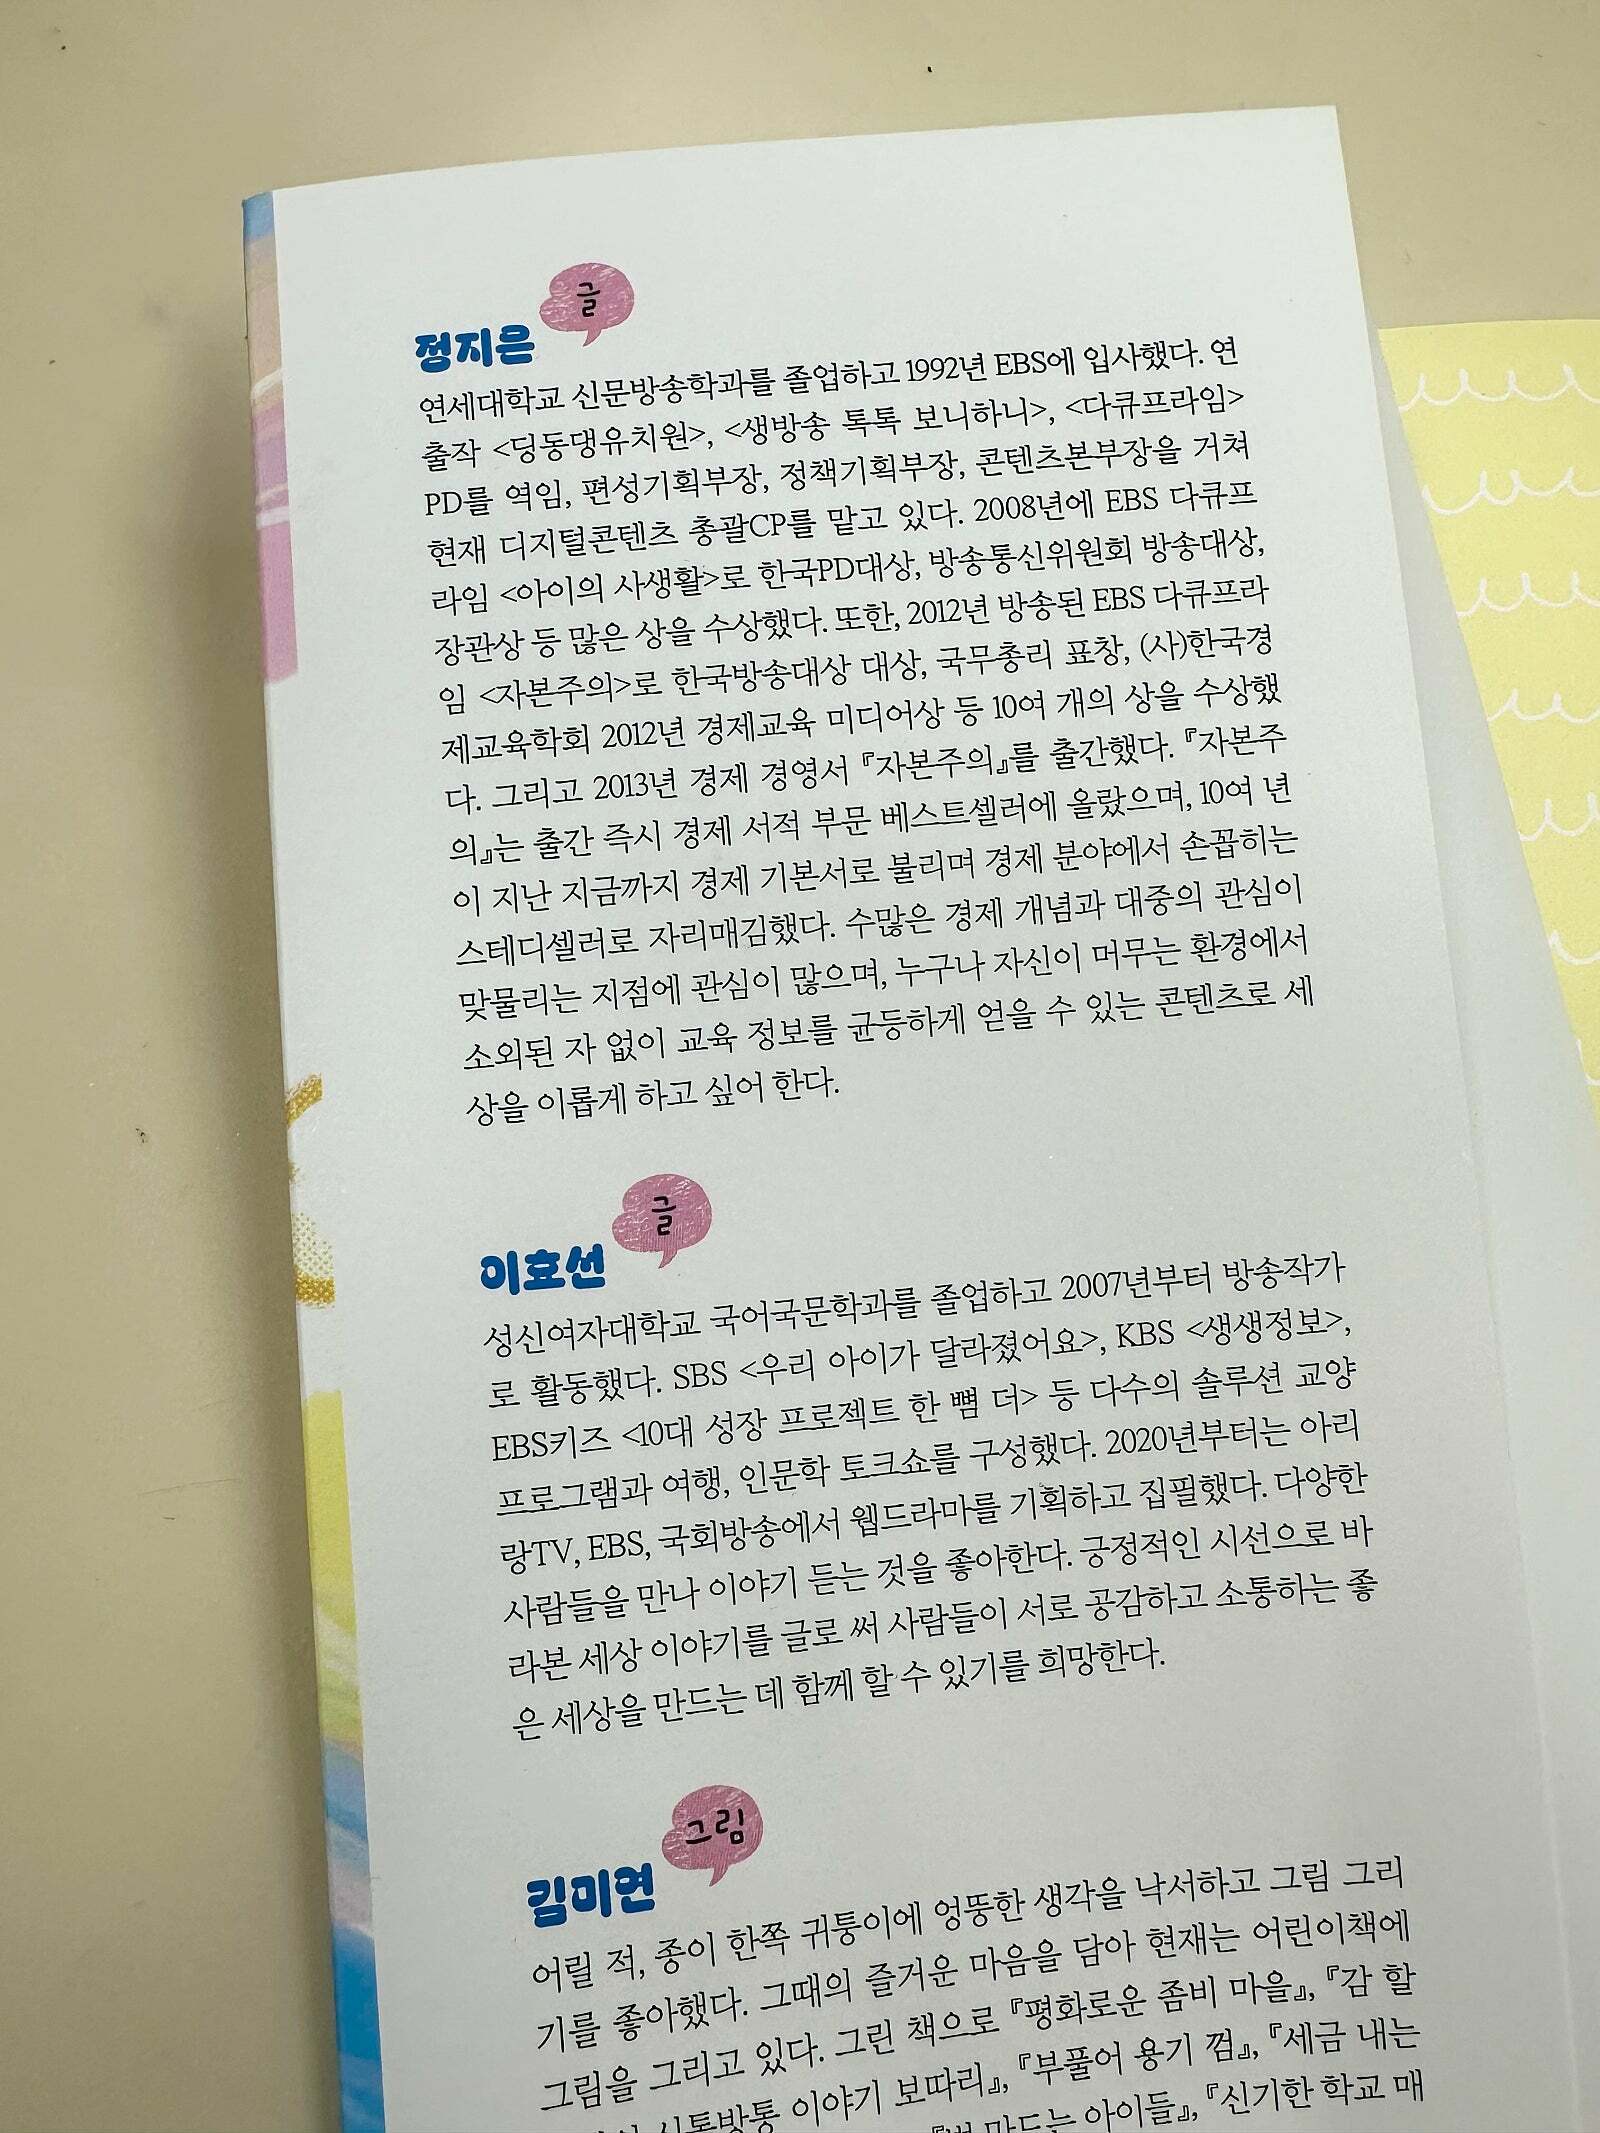 글
정지은
연세대학교 신문방송학과를 졸업하고 1992년 EBS에 입사했다. 연
출작 <딩동댕유치원>, <생방송 톡톡 보니하니>, <다큐프라임>
PD를 역임, 편성기획부장, 정책기획부장, 콘텐츠본부장을 거쳐
현재 디지털콘텐츠 총괄CP를 맡고 있다. 2008년에 EBS 다큐프
라임 <아이의 사생활>로 한국PD대상, 방송통신위원회 방송대상,
장관상 등 많은 상을 수상했다. 또한, 2012년 방송된 EBS 다큐프라
임 <자본주의>로 한국방송대상 대상, 국무총리 표창, (사)한국경
제교육학회 2012년 경제교육 미디어상 등 10여 개의 상을 수상했
다. 그리고 2013년 경제 경영서 『자본주의』를 출간했다. 『자본주
의』는 출간 즉시 경제 서적 부문 베스트셀러에 올랐으며, 10여 년
이 지난 지금까지 경제 기본서로 불리며 경제 분야에서 손꼽히는
스테디셀러로 자리매김했다. 수많은 경제 개념과 대중의 관심이
맞물리는 지점에 관심이 많으며, 누구나 자신이 머무는 환경에서
소외된 자 없이 교육 정보를 균등하게 얻을 수 있는 콘텐츠로 세
상을 이롭게 하고 싶어 한다.
글
이효선
성신여자대학교 국어국문학과를 졸업하고 2007년부터 방송작가
로 활동했다. SBS <우리 아이가 달라졌어요>, KBS <생생정보>,
EBS키즈 <10대 성장 프로젝트 한 뼘 더> 등 다수의 솔루션 교양
프로그램과 여행, 인문학 토크쇼를 구성했다. 2020년부터는 아리
랑TV, EBS, 국회방송에서 웹드라마를 기획하고 집필했다. 다양한
사람들을 만나 이야기 듣는 것을 좋아한다. 긍정적인 시선으로 바
라본 세상 이야기를 글로 써 사람들이 서로 공감하고 소통하는 좋
은 세상을 만드는 데 함께 할 수 있기를 희망한다.
그림
김미연
어릴 적, 종이 한쪽 귀퉁이에 엉뚱한 생각을 낙서하고 그림 그리
기를 좋아했다. 그때의 즐거운 마음을 담아 현재는 어린이책에
그림을 그리고 있다. 그린 책으로 『평화로운 좀비 마을』, 『감 할
신통방통 이야기 보따리』, 『부풀어 용기 껌』, 『세금 내는
만드는 아이들』, 『신기한 학교 매